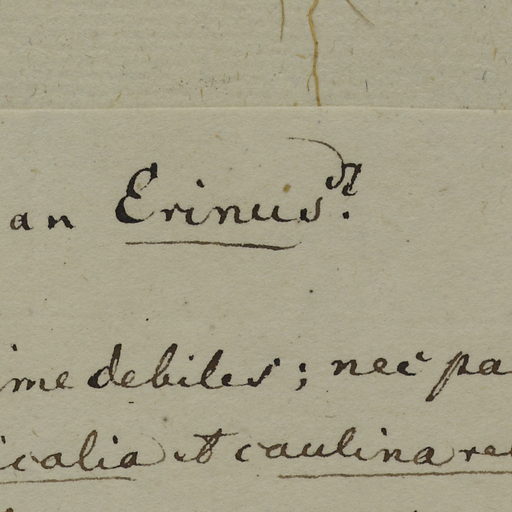 an Erinus?
ime debiles; nec pa
icalia et caulina re